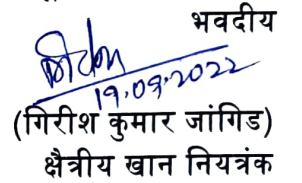 भवदीय
19.09.2022
(गिरीश कुमार जांगिड)
क्षैत्रीय खान नियत्रंक